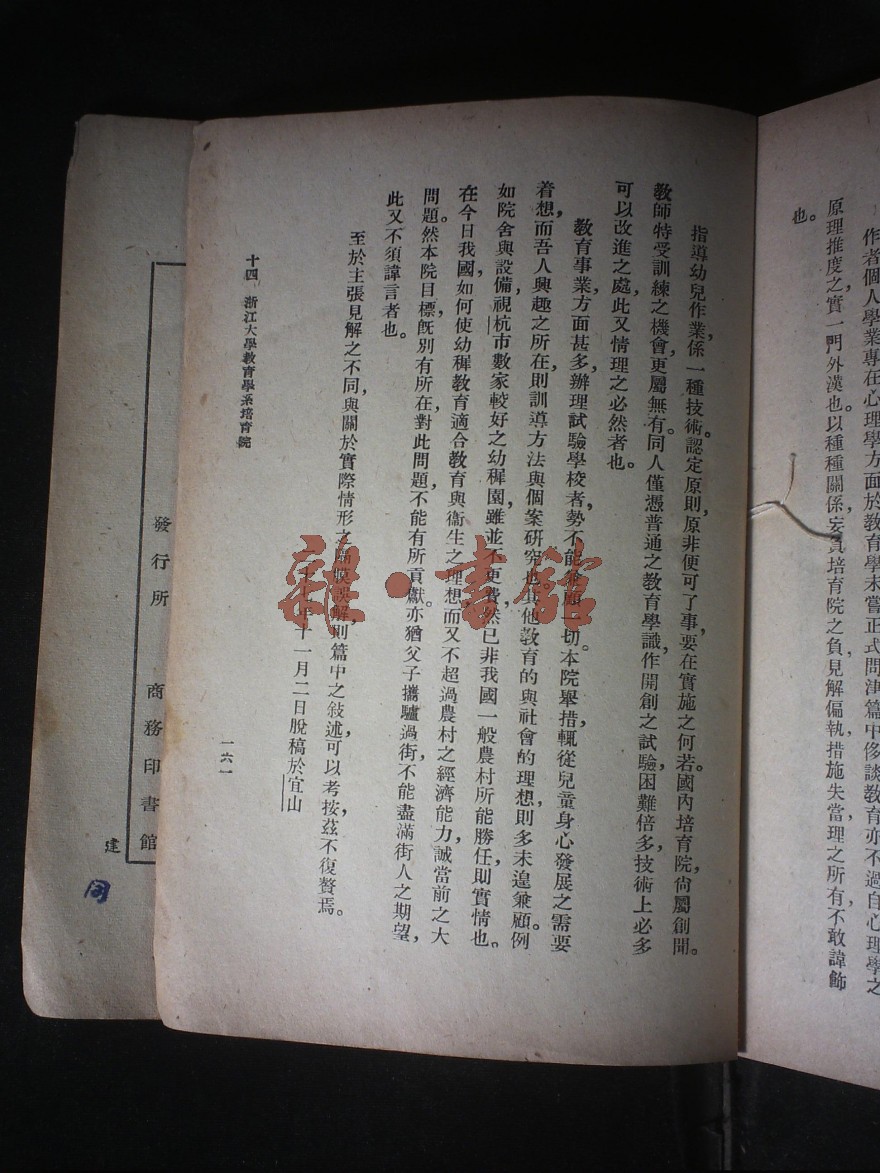 作者個人學業專在心理學方面於教育學未嘗正式問津篇中侈談教育亦不過自心理學之
原理推度之實一門外漢也。以種種關係妄負培育院之負見解偏執措施失當理之所有不敢諱飾
也。
指導幼兒作業，係一種技術。認定原則，原非便可了事，要在實施之何若。國內培育院，尙屬創聞。
教師特受訓練之機會，更屬無有。同人僅憑普通之教育學識，作開創之試驗，困難倍多，技術上必多
可以改進之處，此又情理之必然者也。
教育事業，方面甚多，辦理試驗學校者，勢不能兼顧一切。本院舉措，輒從兒童身心發展之需要
着想，而吾人興趣之所在，則訓導方法與個案研究也。其他教育的與社會的理想，則多未遑兼顧。例
如院舍與設備，視杭市數家較好之幼稺園，雖並不更費，然已非我國一般農村所能勝任，則實情也。
在今日我國，如何使幼稺教育適合教育與衞生之理想，而又不超過農村之經濟能力，誠當前之大
問題。然本院目標，旣別有所在，對此問題，不能有所貢獻。亦猶父子攜驢過街，不能盡滿街人之期望，
此又不須諱言者也。
至於主張見解之不同，與關於實際情形之隔膜誤解，則篇中之敍述，可以考按，茲不復贅焉。
年十一月二日脫稿於宜山
十四 浙江大學教育學系培育院
一六一
發行所 商務印書館
建
雜·書館